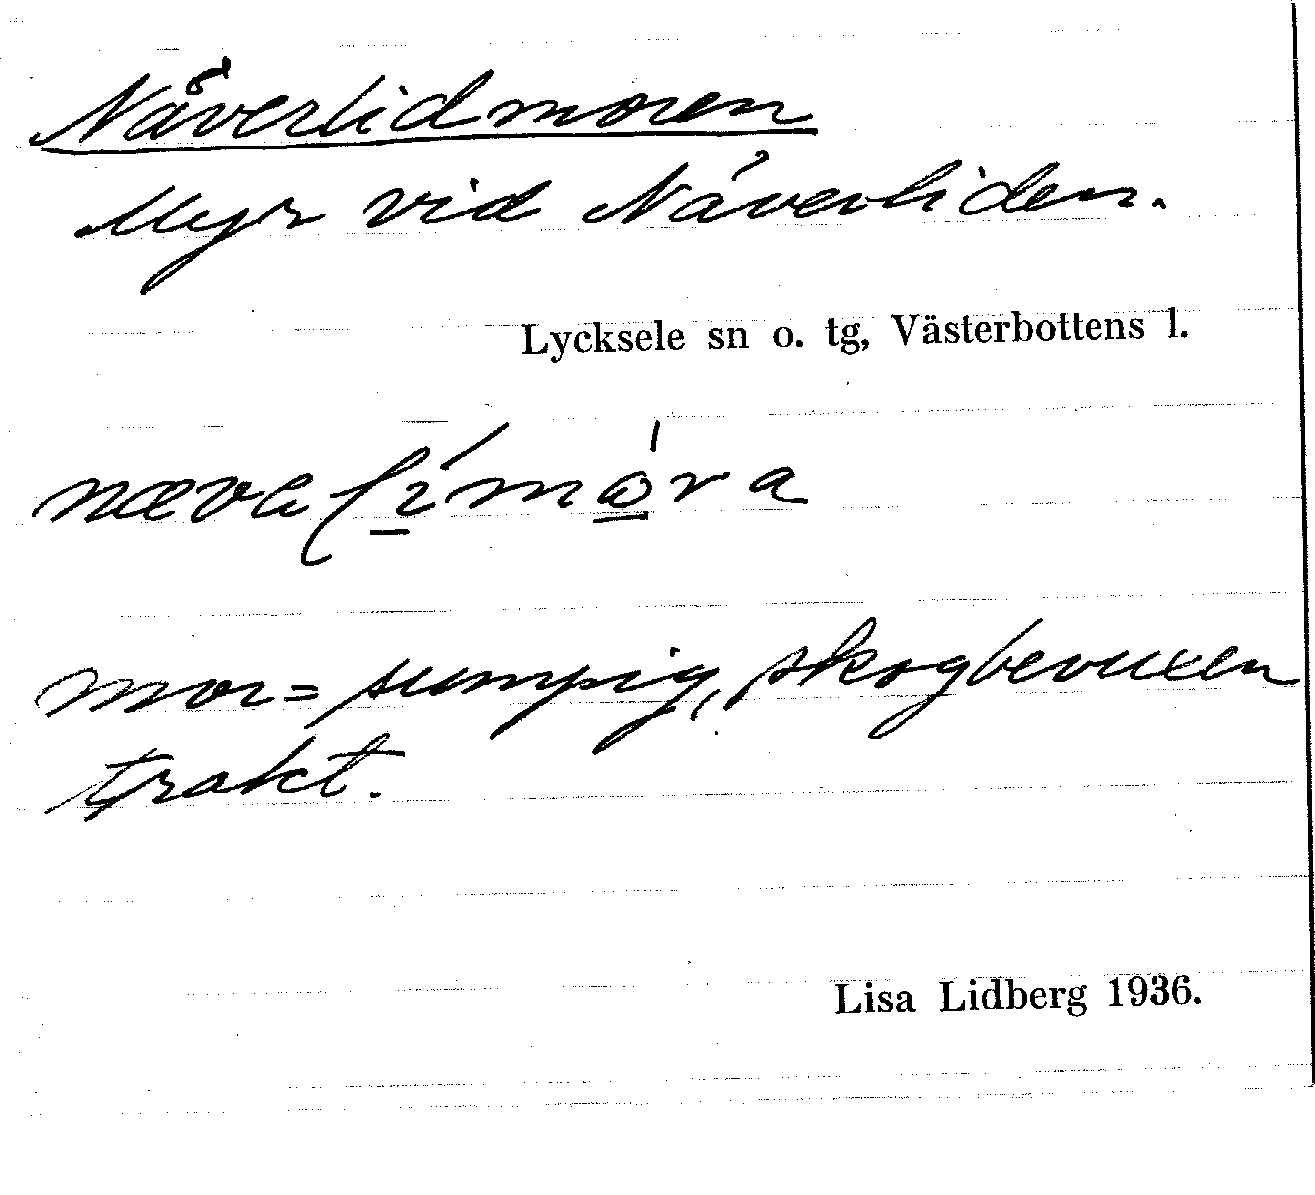 Nåverlidmoren
Myr vid Nåverliden.
Lycksele sn o. tg, Västerbottens l.
mor= sumpig, skogbevuxen
trakt.
Lisa Lidberg 1936.